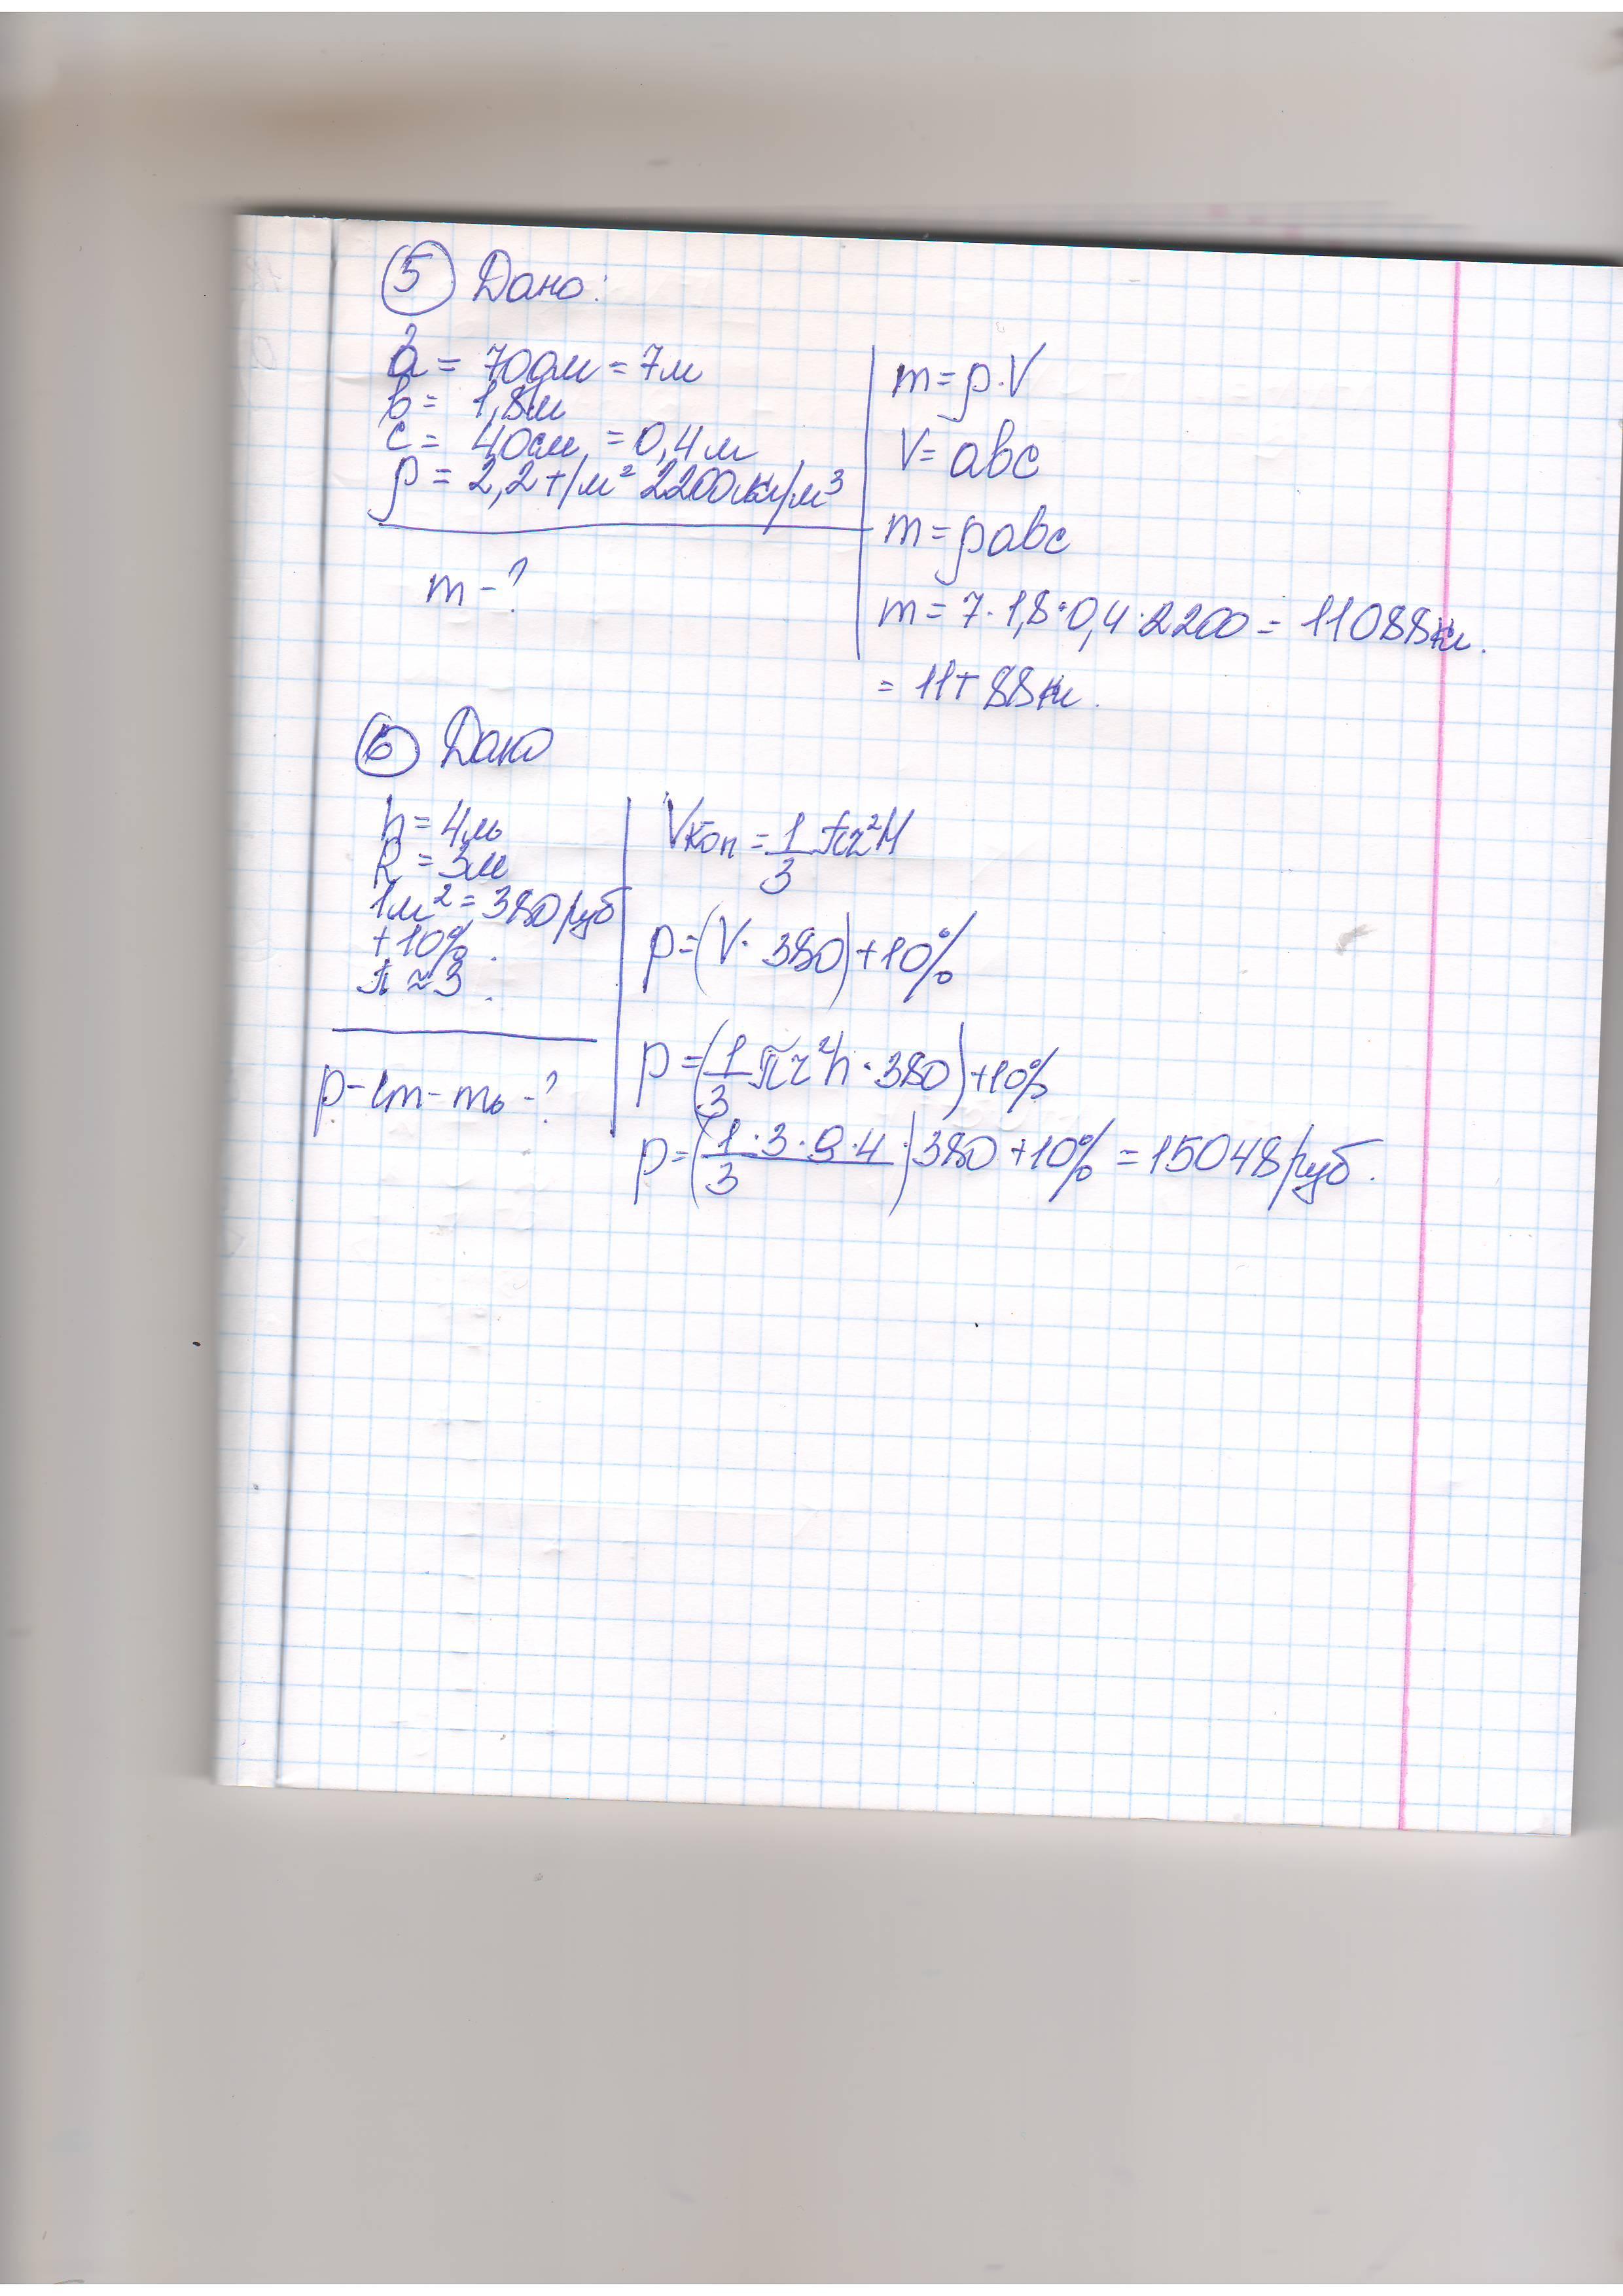 5 Дано:
a = 70дм = 7м
b = 1,8м
c = 40см = 0,4м
ρ = 2,2т/м² 2200кг/м³
m - ?
m = ρ·V
V = abc
m = ρabc
m = 7·1,8·0,4·2200 = 11088кг.
= 11т 88кг.
6 Дано
h = 4м
R = 3м
1м² = 380руб
+10%.
π ≈ 3.
p- -ть -?
Vкон = 1/3 πr²H
p = (V· 380)+10%
p = (1/3 πr²h · 380)+10%
p = (1·3·9·4/3)·380 +10% = 15048руб.